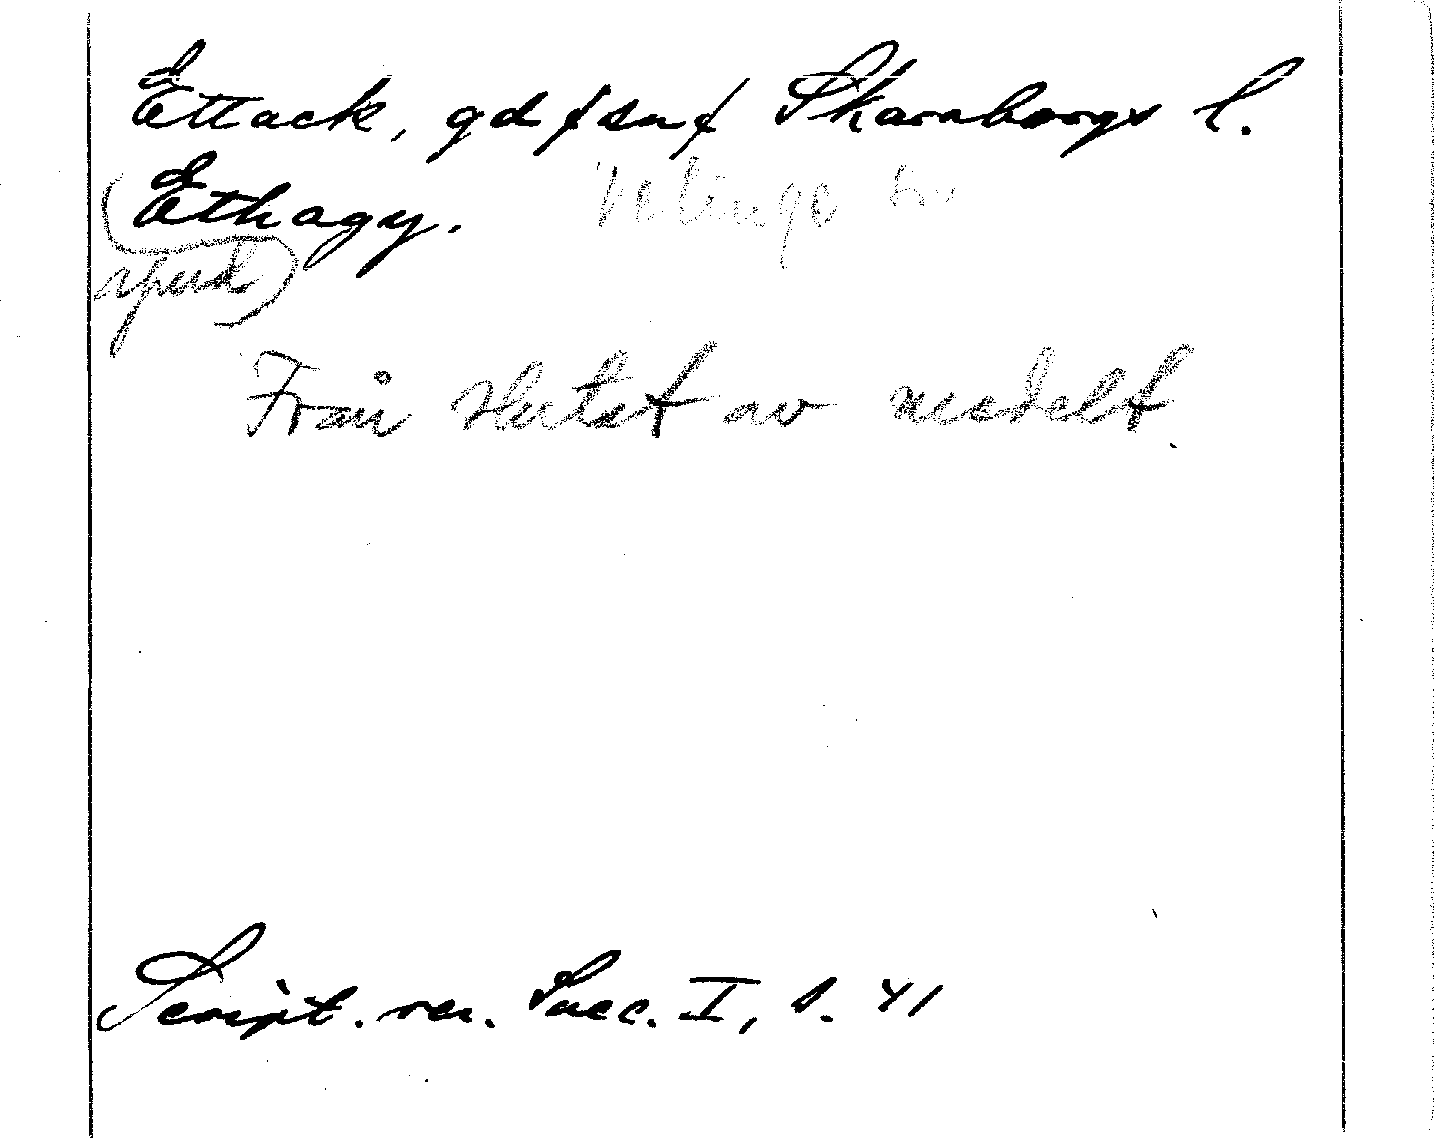 Ettack, gd ɟ sn ɟ Skaraborgs l.
Ethagy. Velinge sn
Från slutet av medelt.
Script. rer. Suec. I, s. 41